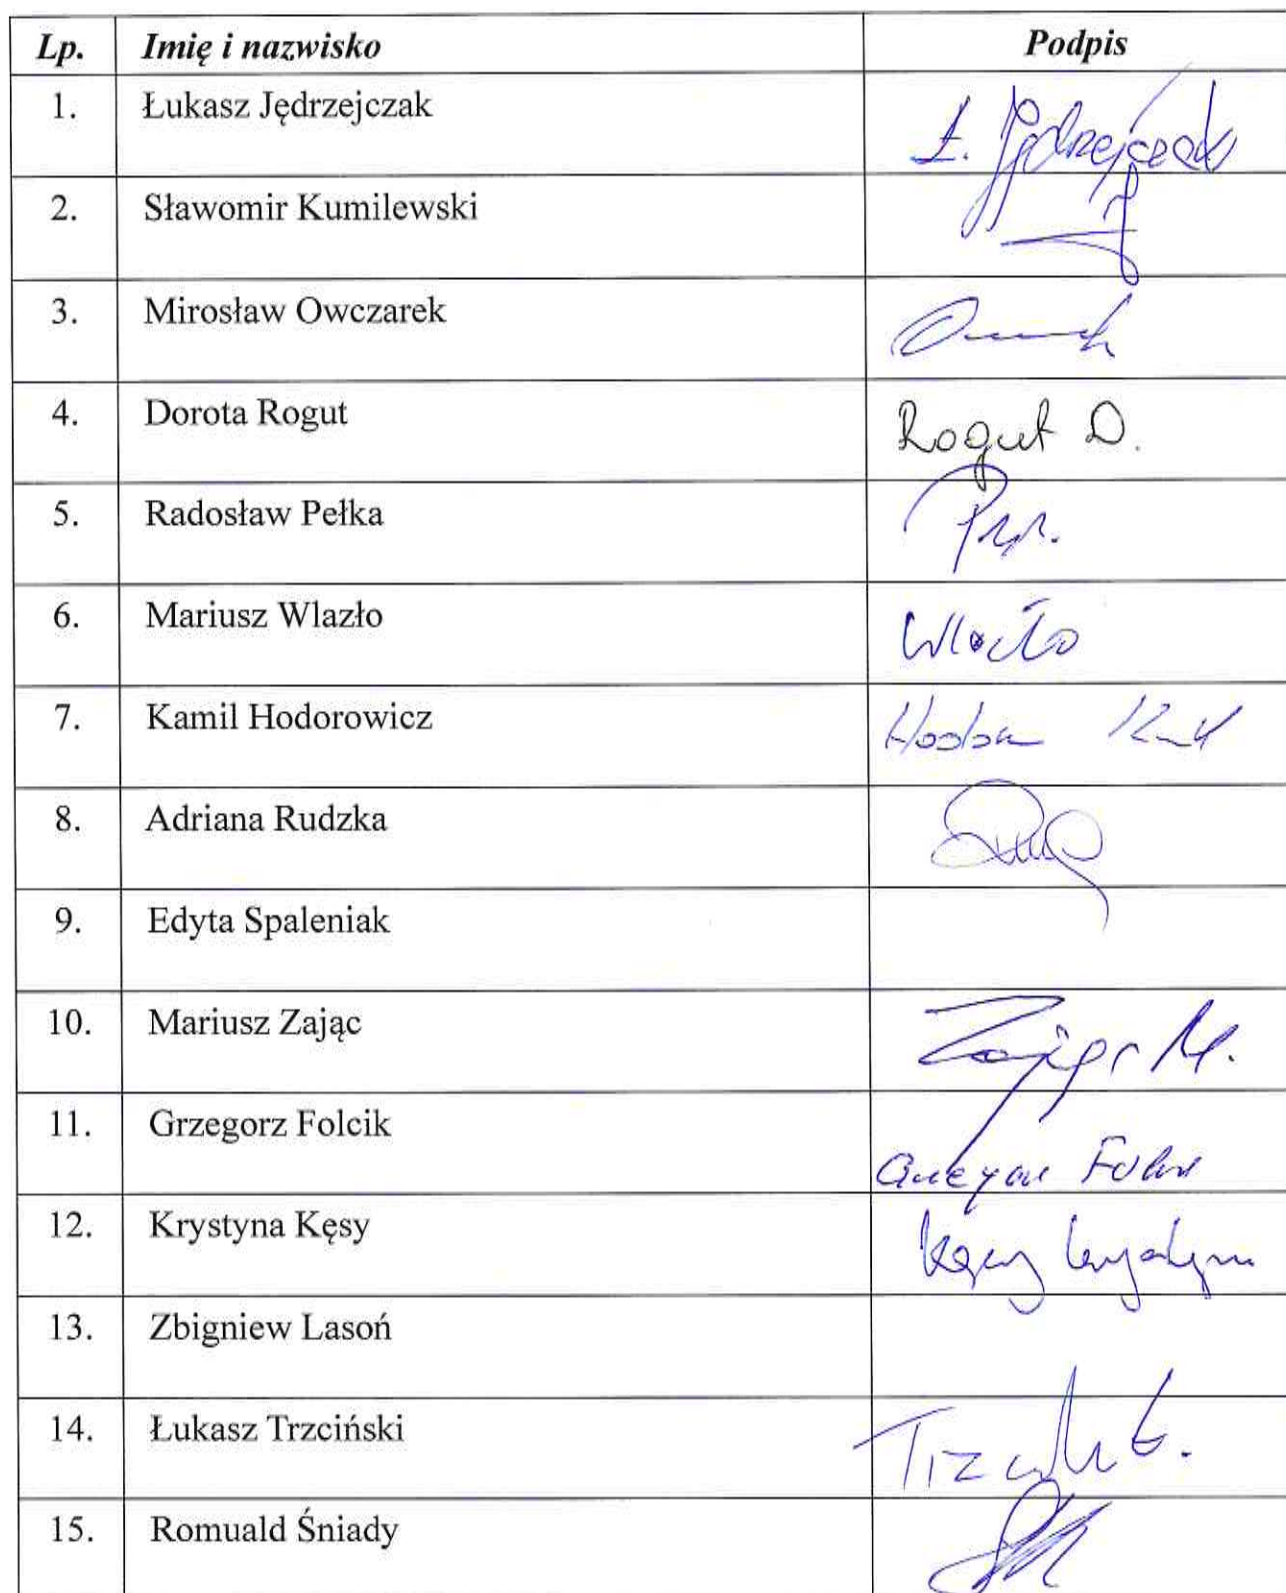 Lp. Imię i nazwisko Podpis
1. Łukasz Jędrzejczak Ł. Jędrzejczak
2. Sławomir Kumilewski
3. Mirosław Owczarek
4. Dorota Rogut Rogut D.
5. Radosław Pełka
6. Mariusz Wlazło Wlazło
7. Kamil Hodorowicz
8. Adriana Rudzka
9. Edyta Spaleniak
10. Mariusz Zając Zając M.
11. Grzegorz Folcik
12. Krystyna Kęsy Kęsy Krystyna
13. Zbigniew Lasoń
14. Łukasz Trzciński
15. Romuald Śniady